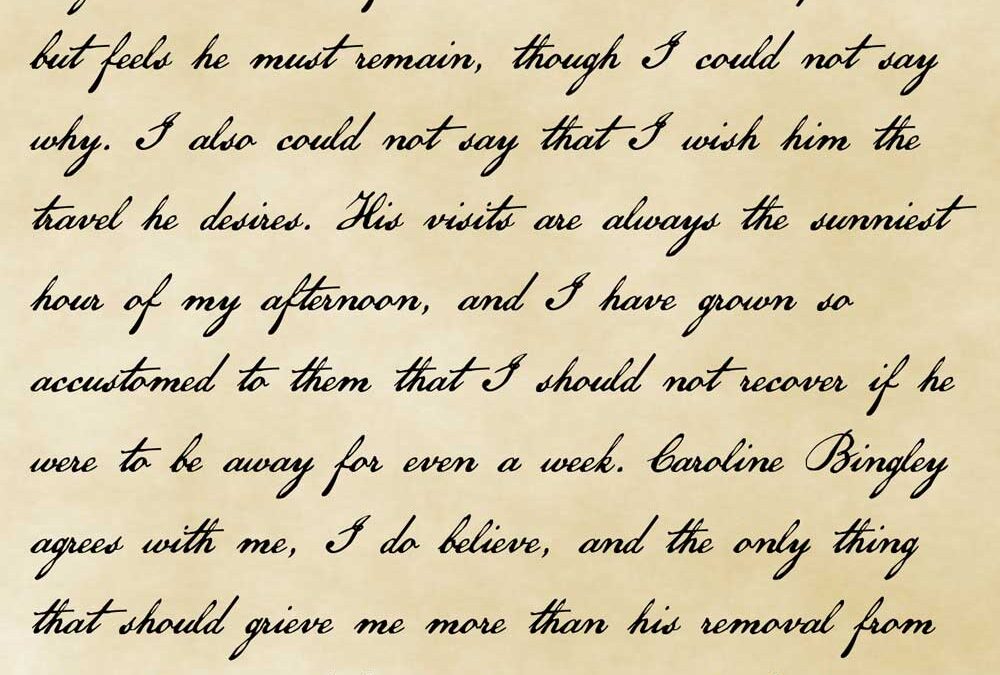 but feels he must remain, though I could not say
why. I also could not say that I wish him the
travel he desires. His visits are always the sunniest
hour of my afternoon, and I have grown so
accustomed to them that I should not recover if he
were to be away for even a week. Caroline Bingley
agrees with me, I do believe, and the only thing
that should grieve me more than his removal from